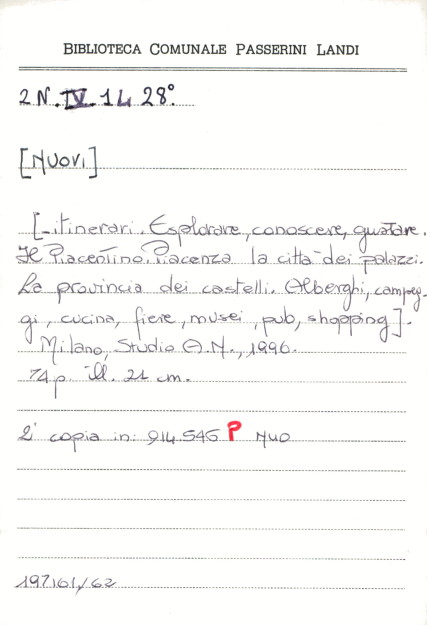 BIBLIOTECA COMUNALE PASSERINI LANDI
2 N. IV. 14 28°
[NUOVI]
[- itinerari. Esplorare, conoscere, gustare.
Il Piacentino. Piacenza la città dei palazzi.
La provincia dei castelli. Alberghi, campeg-
gi, cucina, fiere, musei, pub, shopping].
Milano, Studio A.N., 1996.
74 p. ill. 21 cm.
2ª copia in: 914.545 P NUO
197161/62